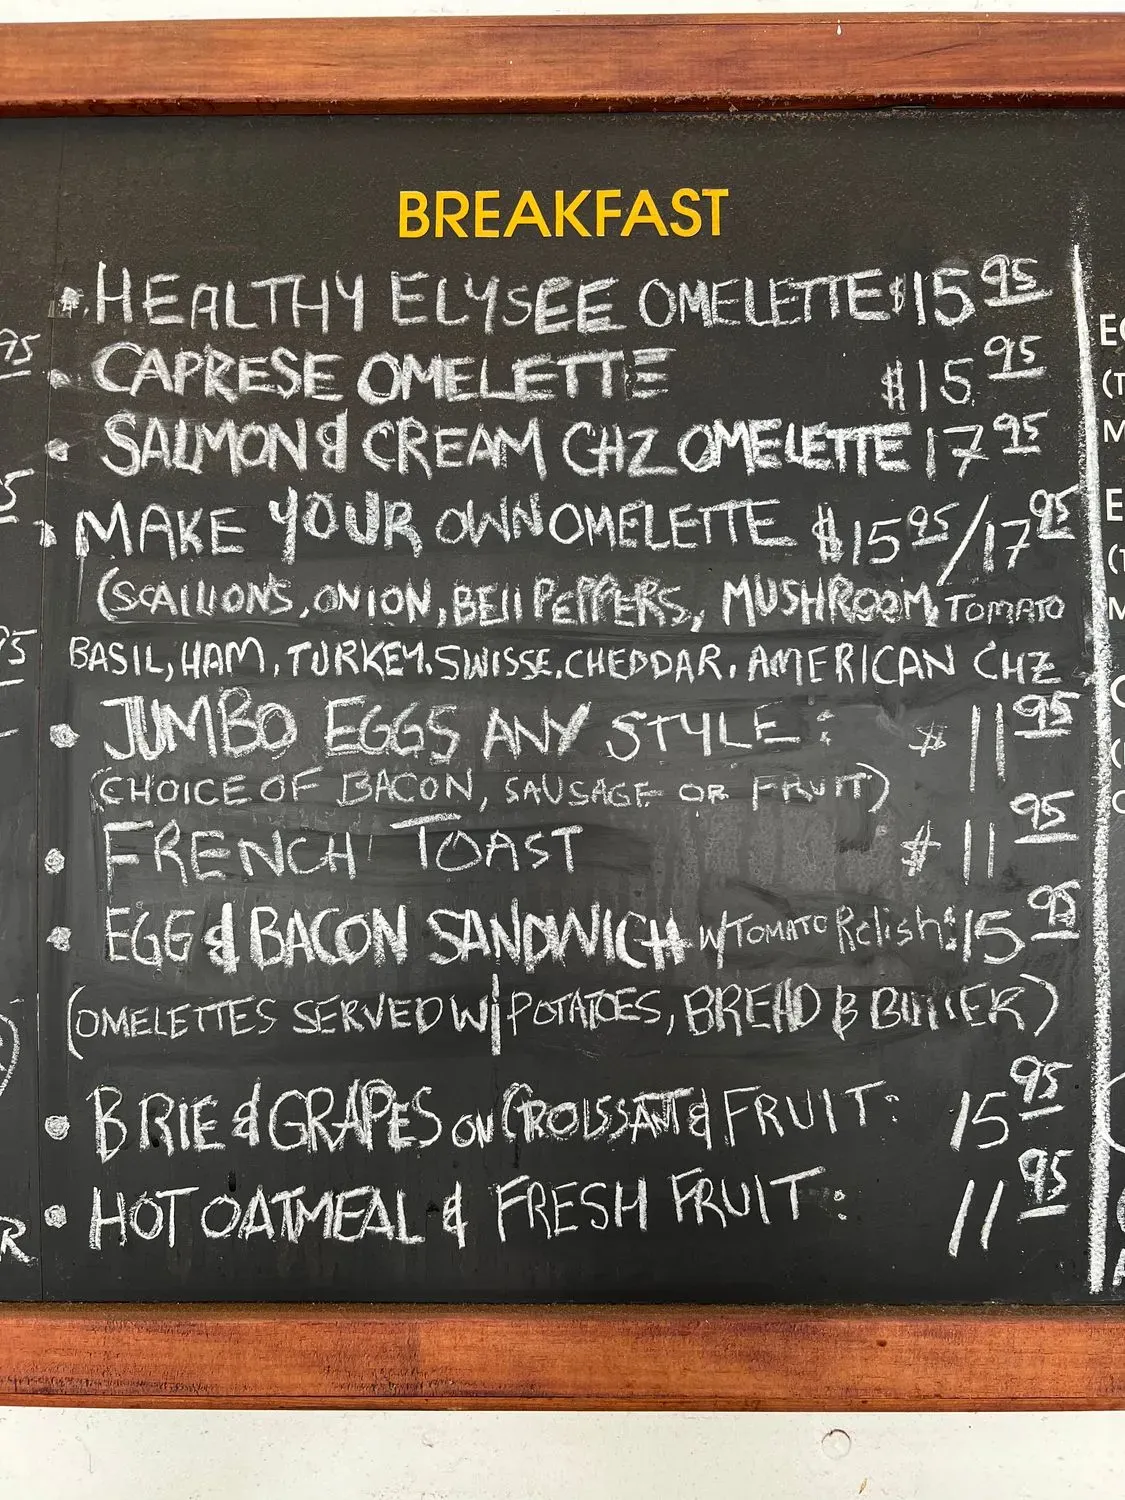 BREAKFAST
• HEALTHY ELYSEE OMELETTE $15 95
• CAPRESE OMELETTE $15 95
• SALMON & CREAM CHZ OMELETTE 17 95
• MAKE YOUR OWN OMELETTE $15 95/17 95
(SCALLIONS, ONION, BELL PEPPERS, MUSHROOM, TOMATO
BASIL, HAM, TURKEY, SWISSE, CHEDDAR, AMERICAN CHZ
• JUMBO EGGS ANY STYLE: $11 95
(CHOICE OF BACON, SAUSAGE OR FRUIT)
• FRENCH TOAST $11 95
• EGG & BACON SANDWICH W/TOMATO Relish: $15 95
(OMELETTES SERVED W/ POTATOES, BREAD & BUTTER)
• BRIE & GRAPES ON CROISSANT & FRUIT: 15 95
• HOT OATMEAL & FRESH FRUIT: 11 95